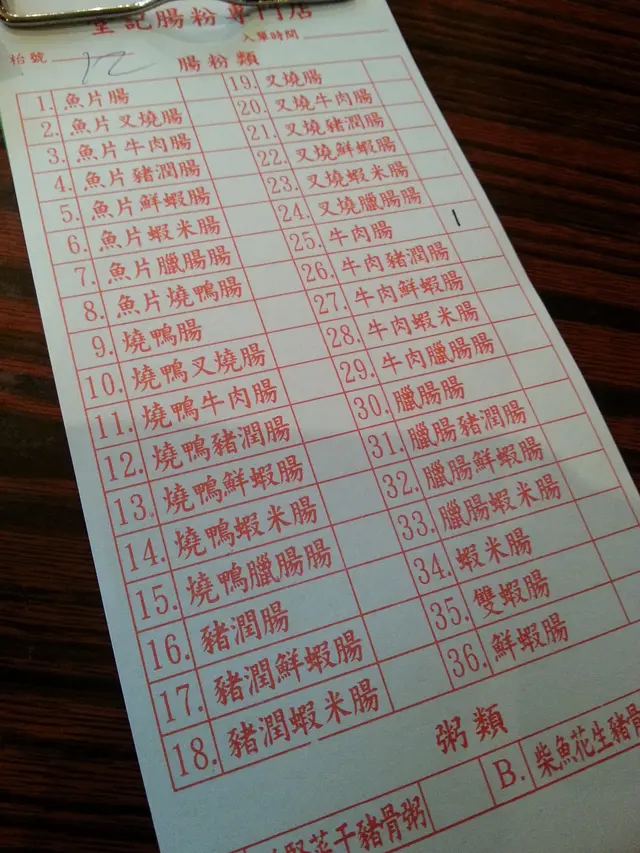 堂記腸粉專門店
入單時間
枱號 12
腸粉類
1. 魚片腸
2. 魚片叉燒腸
3. 魚片牛肉腸
4. 魚片豬潤腸
5. 魚片鮮蝦腸
6. 魚片蝦米腸
7. 魚片臘腸腸
8. 魚片燒鴨腸
9. 燒鴨腸
10. 燒鴨叉燒腸
11. 燒鴨牛肉腸
12. 燒鴨豬潤腸
13. 燒鴨鮮蝦腸
14. 燒鴨蝦米腸
15. 燒鴨臘腸腸
16. 豬潤腸
17. 豬潤鮮蝦腸
18. 豬潤蝦米腸
19. 叉燒腸
20. 叉燒牛肉腸
21. 叉燒豬潤腸
22. 叉燒鮮蝦腸
23. 叉燒蝦米腸
24. 叉燒臘腸腸
25. 牛肉腸 1
26. 牛肉豬潤腸
27. 牛肉鮮蝦腸
28. 牛肉蝦米腸
29. 牛肉臘腸腸
30. 臘腸腸
31. 臘腸豬潤腸
32. 臘腸鮮蝦腸
33. 臘腸蝦米腸
34. 蝦米腸
35. 雙蝦腸
36. 鮮蝦腸
粥類
菜干豬骨粥
B. 柴魚花生豬骨